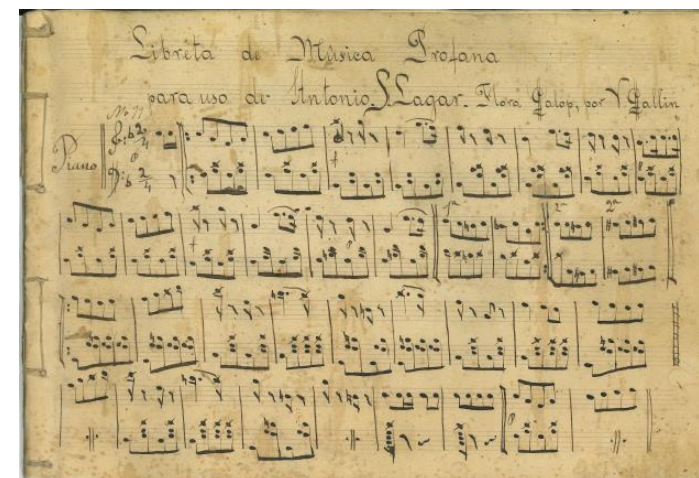 Libreta de Música Profana
para uso de Antonio S. Lagar. Flora Galop, por V Gallin
Nº 11
Piano
1ª 2ª 2ª